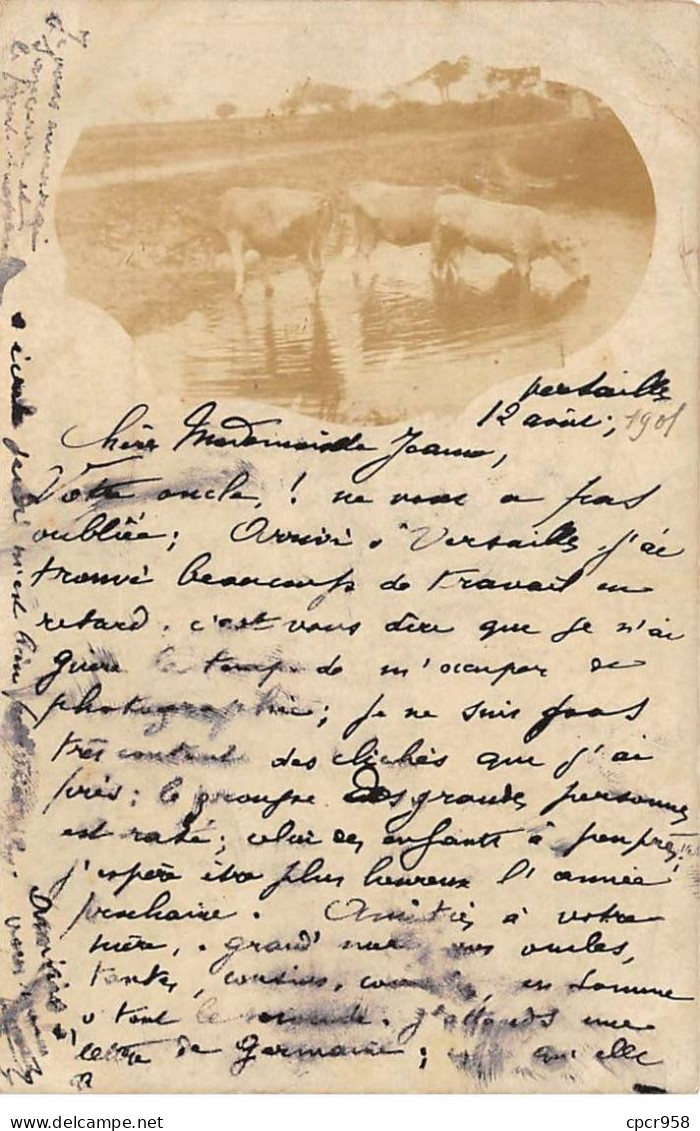 Versailles
12 août, 1901
Chère Mademoiselle Jeanne,
Votre oncle, ! ne vous a pas
oubliée; Arrivé à Versailles j'ai
trouvé beaucoup de travail en
retard. c'est vous dire que je n'ai
guère le temps de m'occuper de
photographie; je ne suis pas
très content des clichés que j'ai
pris; le groupe des grandes personnes
est raté; celui des enfants à peu près!
j'espère être plus heureux l'année
prochaine. Amitiés à votre
mère, grand' mère vos oncles,
tantes, cousins, en somme
à tout le monde. j'attends une
lettre de Germaine; qu'elle
cpcr958